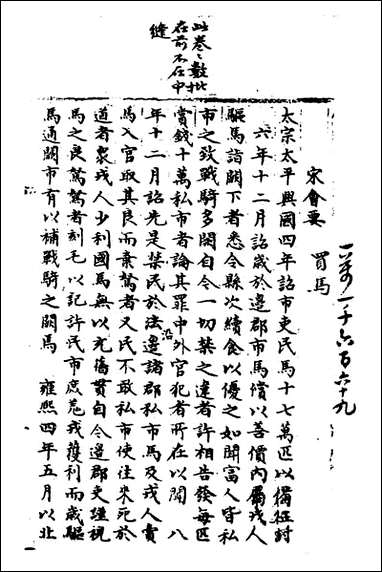 此卷之數批
在前不在中
縫
宋會要
買馬
一萬一千六百六十九
太宗太平興國四年詔市吏民馬十七萬匹以備征討
六年十二月詔歲於邊郡市馬償以善價內屬戎人
驅馬詣闕下者悉令縣次續食以優之如聞富人皆私
市之致戰騎多闕自今一切禁之違者許相告發每匹
賞錢十萬私市者論其罪中外官犯者所在以聞 八
年十二月詔先是禁民於法沿邊諸郡私市馬及戎人賣
馬入官取其良而棄駑者又民不敢私市使往來死於
道者衆戎人少利國馬無以充舊貫自今邊郡吏謹視
馬之良駑駑者刻毛以記許民市庶羌戎獲利而歲驅
馬通關市有以補戰騎之闕焉 雍熙四年五月以北